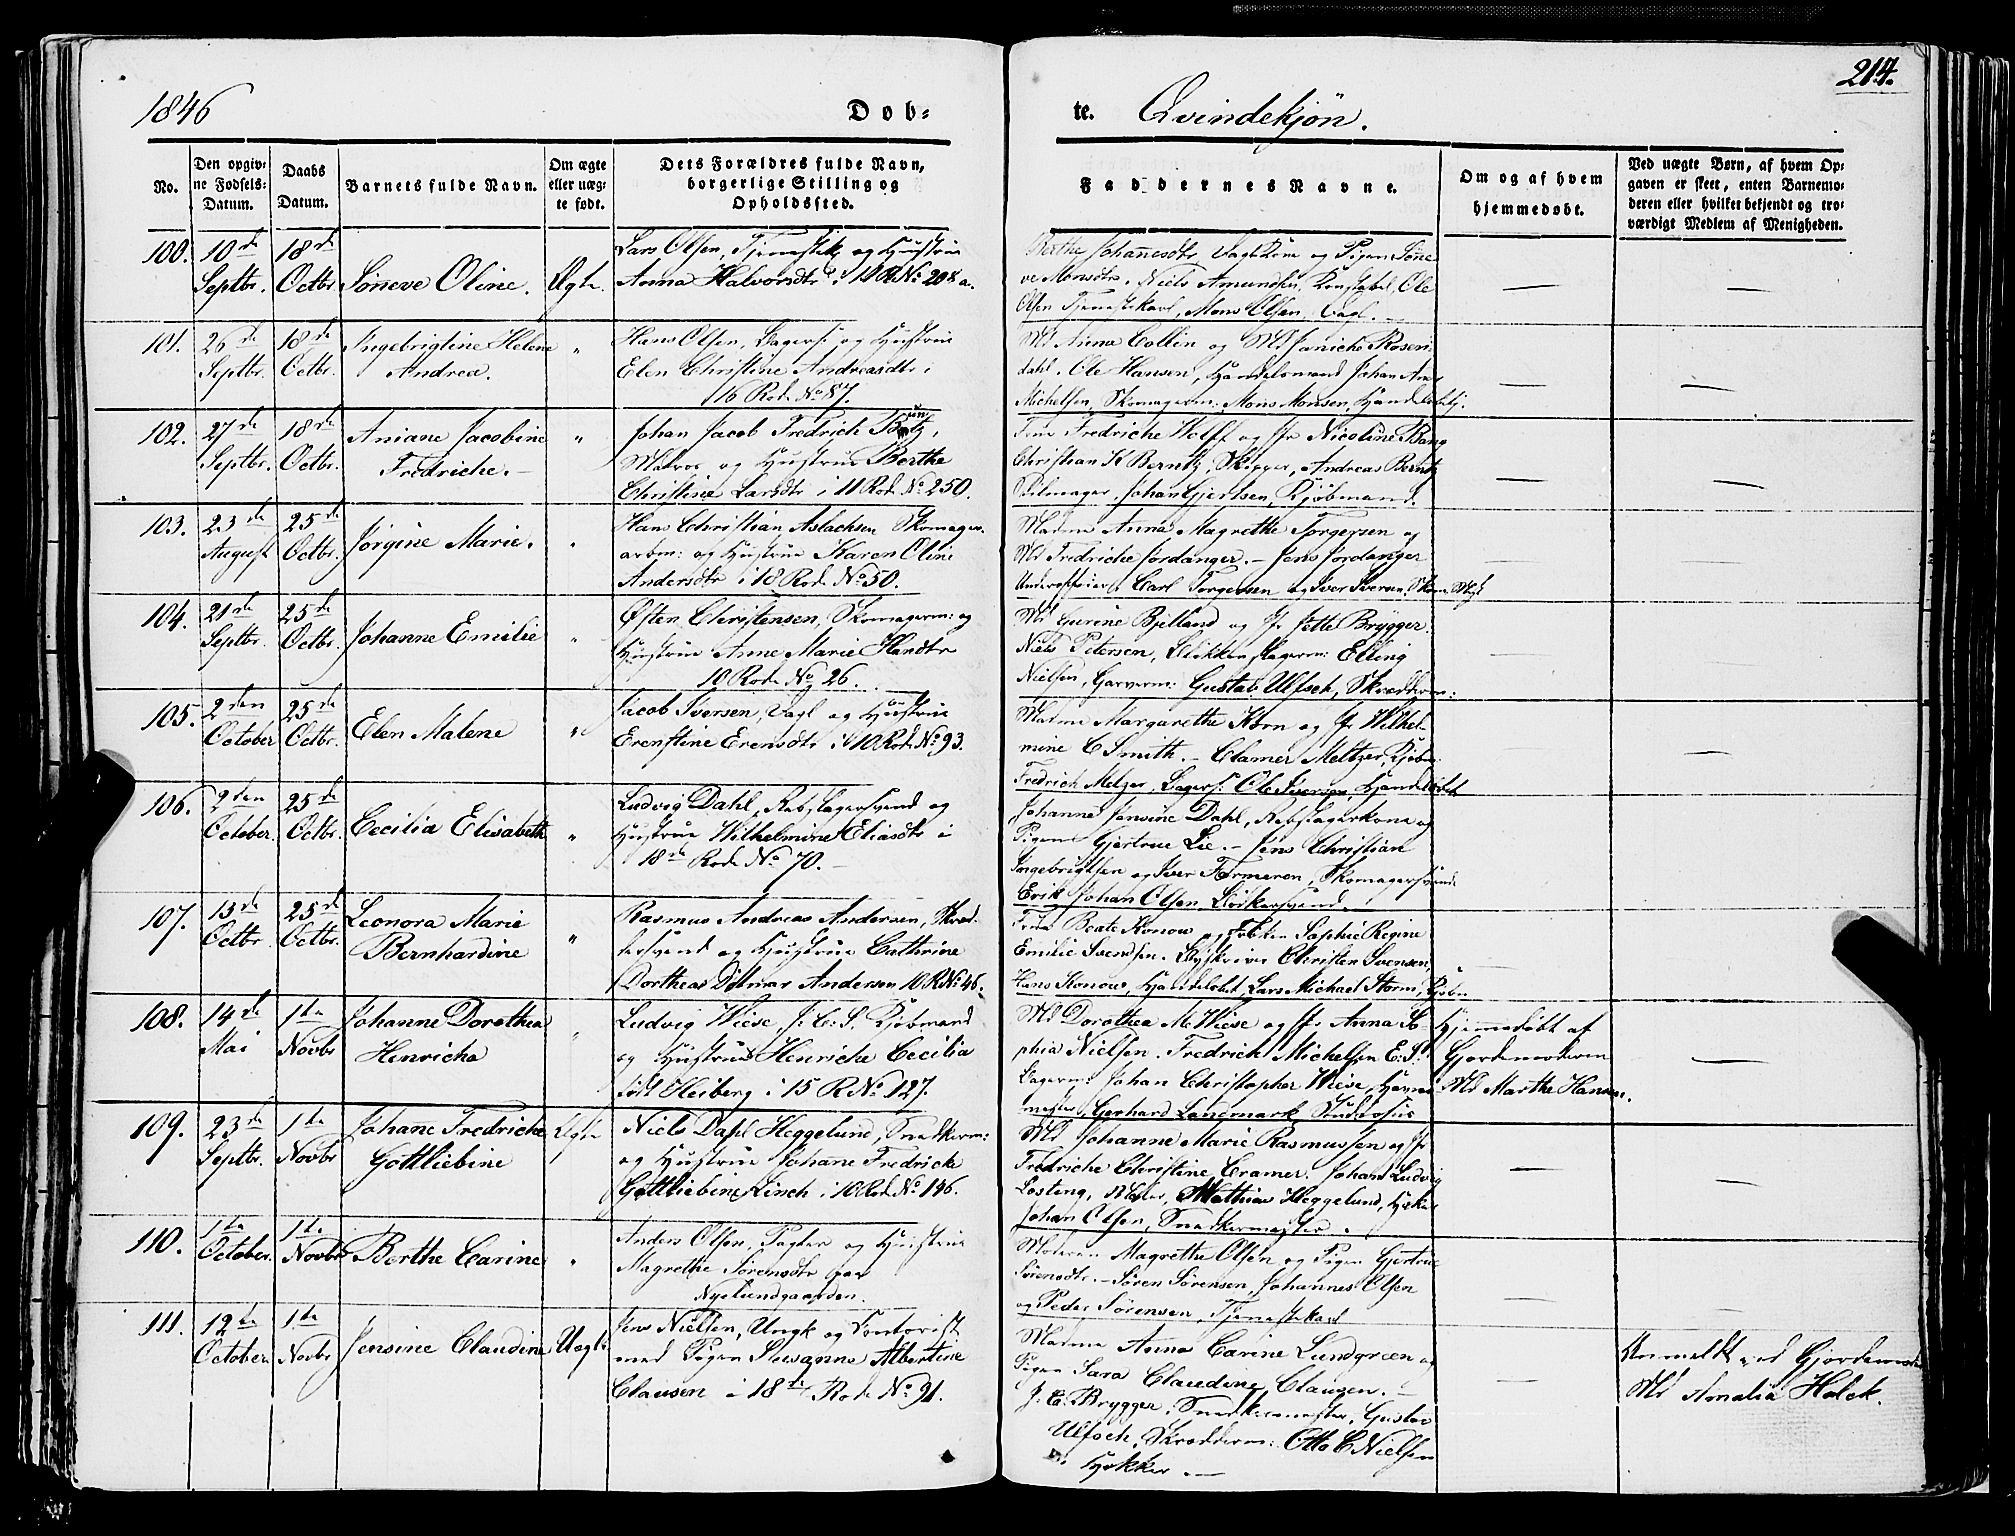 1846
Døb-
te. Qvindekjøn.
214.
No.
Den opgivne Fødsels-Datum.
Daabs Datum.
Barnets fulde Navn.
Om ægte eller uægte født.
Dets Forældres fulde Navn, borgerlige Stilling og Opholdssted.
Faddernes Navne.
Om og af hvem hjemmedøbt.
Ved uægte Børn, af hvem Opgaven er skeet, enten Barnemoderen eller hvilket bekjendt og troværdigt Medlem af Menigheden.
100. 10de Septbr. 18de Octbr. Sønneve Oline. Ægte.
Lars Olsen, og Hustrue
Anna Halvorsdtr i
Berthe Johannesdtr og Pigen Sønne
ve Monsdtr. Niels Amundsen, Konstabel, Ole
Olsen Tjenestekarl, Mons Olsen, Vagl. —
101. 26de Septbr. 18de Octbr. Ingebrigtine Helene Andrea. "
Hans Olsen, og Hustrue
Elen Christine Andreasdtr i
16 Rode No 87.
Md Anna Collin og Md Janiche Rosen
dahl. Ole Hansen, Handelsmand Johan
Michelsen, Skomagerm: Mons Monsen,
102. 27de Septbr. 18de Octbr. Aniane Jacobine Fredriche. — "
Johan Jacob Fredrich
og Hustrue Berthe
Christine Larsdtr i 11 Rode No 250.
Frue Fredriche Wolff og Jfr Nicoline Bang
Christian K Berntz, Skipper, Andreas Berntz
Johan Gjertsen, Kjøbmand.
103. 23de August 25de Octbr. Jørgine Marie. "
Hans Christian Aslachsen Skomager-
arbm: og Hustrue Karen Oline
Andersdtr i 18 Rode No 50.
Madme Anna Magrethe Torgersen og
Md Fredriche Jordanger. — Jens Jordanger
Underofficier, Carl Torgersen og Iver Iversen,
104. 21de Septbr. 25de Octbr. Johanne Emilie "
Østen Christensen, Skomagerm: og
Hustrue Anne Marie
10 Rode No 26.
Md Gurine Bjelland og Jfr Jette Brygger.
Niels Petersen, Blikkenslagerm: Elling
Nielsen, Garverm: Gustav Ulfsch, Skrædderm:
105. 2den October 25de Octbr. Elen Malene "
Jacob Iversen, Vagl og Hustrue
Erenstine Erensdtr i 10 Rode No 93.
Madme Margarethe Korn og Jfr Wilhel-
mine C Smith. — Clamer Meltzer, Kjøbm:
Fredrich Melzer, Ole Iversen,
106. 2den October. 25de Octbr. Cecilia Elisabeth "
Ludvig Dahl, Rebslagersvend og
Hustrue Wilhelmine Eliasdtr i
18de Rode No 70. —
Johanne Jensine Dahl, Rebslagerkone og
Pigen Gjertrue Lie. — Jens Christian
Ingebrigtsen og Iver Skomagersvende
Erik Johan Olsen, Bødkersvend.
107. 13de Octbr. 25de Octbr. Leonora Marie Bernhardine "
Rasmus Andreas Andersen, Skræd-
dersvend og Hustrue Cathrine
Dorthea Ditmar Andersen 10 R No 46.
Frue Beate Konow og Frøken Sophie Regine
Emilie Svendsen. Christen Svensen,
Hans Konow, Lars Michael Storm, Kjøbm
108. 14de Mai 1te Novbr Johanne Dorothea Henricha "
Ludvig Wiese, Kjøbmand
og Hustrue Henriche Cecilia
født Heiberg i 15 R No 127.
Md Dorothea M. Wiese og Jfr Anna So-
phia Nielsen. Fredrich Michelsen
Bagerm: Johan Christopher Wiese, Havne-
mester, Gerhard Landmark Studiosus
Hjemmedøbt af
Gjordemoderen
Md Marthe Hansen.
109. 23de Septbr. 1te Novbr Johane Fredriche Gottliebine Ægte
Niels Dahl Heggelund, Snedkerm:
og Hustrue Johanne Fredricke
Gottliebene Linch i 10 Rode No 146.
Md Johanne Marie Rasmussen og Jfr
Fredriche Christine Cramer. Johan Ludvig
Losting, Maler, Mathias Heggelund, Høker
Johan Olsen, Snedkermester.
110. 1te October. 1te Novbr Berthe Carine "
Anders Olsen, Pagter og Hustrue
Magrethe Sørensdtr paa
Nyelundgaarden.
Moderen Magrethe Olsen og Pigen Gjertrue
Sørensdtr. — Søren Sørensen, Johannes Olsen
og Peder Sørensen, Tjenestekarl
111. 12te October 1te Novbr Jensine Claudine Uægte
Jens Nielsen, Ungk og Contorist
med Pigen Susanne Albertine
Clausen i 18de Rode No 91.
Madme Anna Carine Lundgreen og
Pigen Sara Claudine Clausen. —
J. C. Brygger, Snedkermester, Gustav
Ulfsch, Skrædderm: Otto C Nielsen
Høkker. —
Anmeldt ved Gjordemoder
Md Amalia Holck.